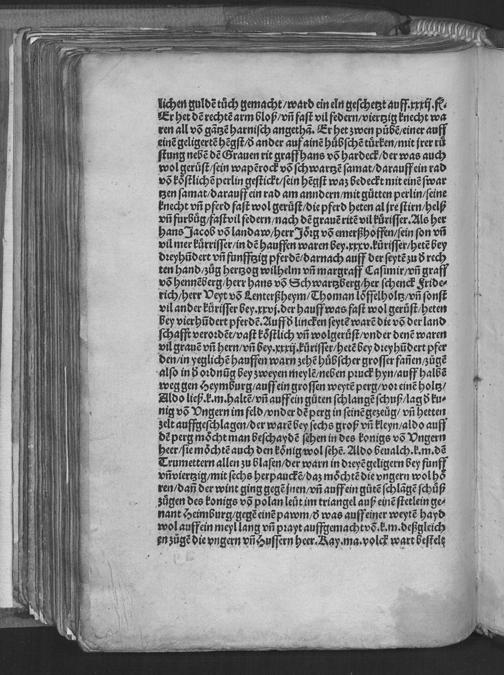 lichen guldē tůch gemacht/ward ein eln geschetzt auff.xxxij.fl.
Er het dē rechtē arm bloß/vñ fast vil federn/viertzig knecht wa
ren all võ gātzē harnisch angethā. Er het zwen půbē/einer auff
einē geligertē hēgst/ď ander auf ainē hübschē türken/mit jrer rü
stung nebē dē Grauen rit graff hans võ hardeck/der was auch
wol gerüst/sein wapērock võ schwartzē samat/darauff ein rad
võ köstlichē perlin gestickt/sein hēgst waz bedeckt mit einē swar
tzen samat/darauff ein rad am anndern/mit gůtten perlin/seine
knecht vñ pferd fast wol gerüst/die pferd heten al jre stirn/helß
vñ furbüg/fast vil federn/nach dē grauē ritē vil kürisser. Als her
hans Jacob võ landaw/herr Jörg võ emerßhoffen/sein son vñ
vil mer kürrisser/in dē hauffen waren bey.xxxv.kürisser/hetē bey
dreyhūdert vñ funfftzig pferdē/darnach auff der seytē zů ď rech
ten hand/züg hertzog wilhelm vñ margraff Casimir/vñ graff
võ hennēberg/herr hans võ Schwartzberg/her schenck Fride
rich/herr Veyt võ Lenterßheym/Thoman löffelholtz/vñ sonst
vil ander kürisser bey.xxvj.der hauff was fast wol gerüst/heten
bey vierhūdert pferdē. Auff ď lincken seytē warē die võ der land
schafft verordēt/vast köstlich vñ wolgerüst/vnder denē waren
vil grauē vñ hern/vñ bey.xxxij.kürisser/hetē bey dreyhūdert pfer
den/in yeglichē hauffen warn zehē hübscher grosser fanēn/zůgē
also in ď ordnūg bey zweyen meylē/neben pruck hyn/auff halbē
weg gen Heymburg/auff ein grossen weytē perg/vor einē holtz/
Aldo ließ.k.m.haltē/vñ auff ein gůten schlangē schuß/lag ď ku-
nig võ Vngern im feld/vnder dē perg in seinē gezeüg/vñ hetten
zelt auffgeschlagen/der warē bey sechs groß vñ kleyn/aldo auff
dē perg möcht man beschaydē sehen in des konigs võ Vngern
heer/sie möchtē auch den könig wol sehē. Aldo beualch.k.m.dē
Trumettern allen zů blasen/der warn in dreyē geligern bey funff
vñ viertzig/mit sechs herpauckē/daz möchtē die vngern wol hö
ren/dañ der wint ging gegē jnen/vñ auff ein gůtē schlāgē schüß
zügen des konigs võ polan leüt im triangel auß einē stetlein ge-
nant Heimburg/gegē einē pawm/ď was auff einer weytē hayd
wol auff ein meyl lang vñ prayt auffgemacht võ.k.m.deßgleich
en zůgē die vngern vñ Hussern heer. Kay.ma.volck wart bestelt